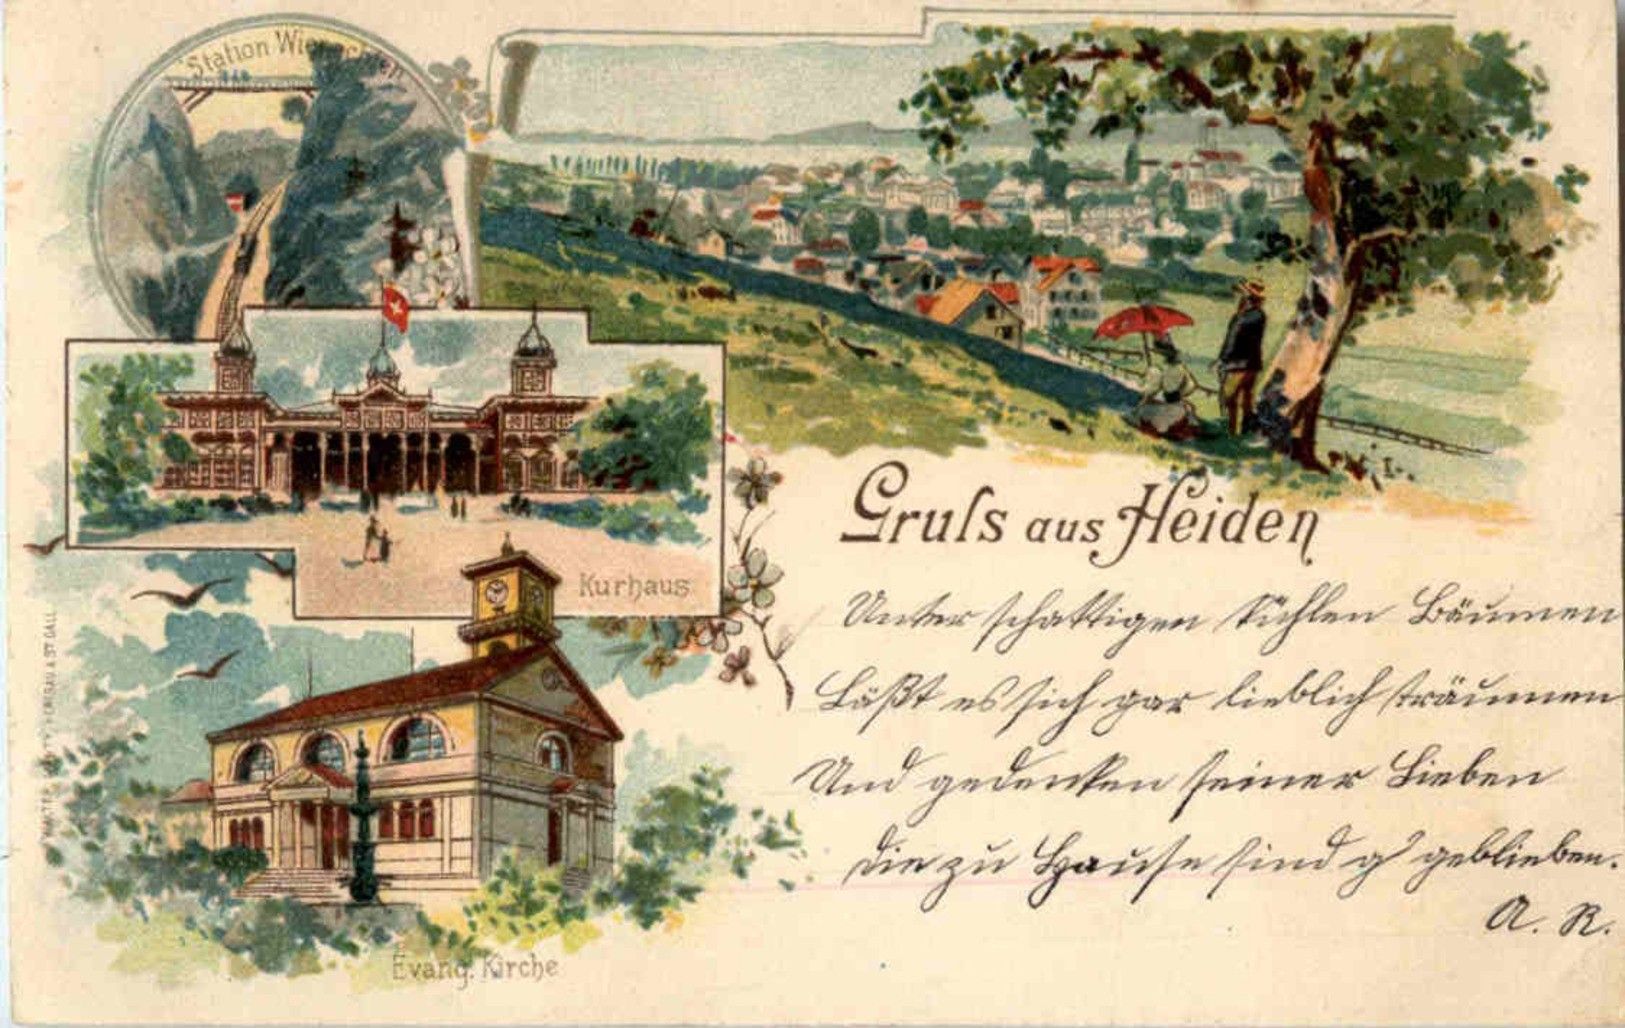 Station Wienachten
Gruſs aus Heiden
Kurhaus
Unter schattigen kühlen Bäumen
Läßt es sich gar lieblich träumen
Und gedenken seiner Lieben
die zu Hause sind geblieben.
A. R.
Evang. Kirche
ST. GALL